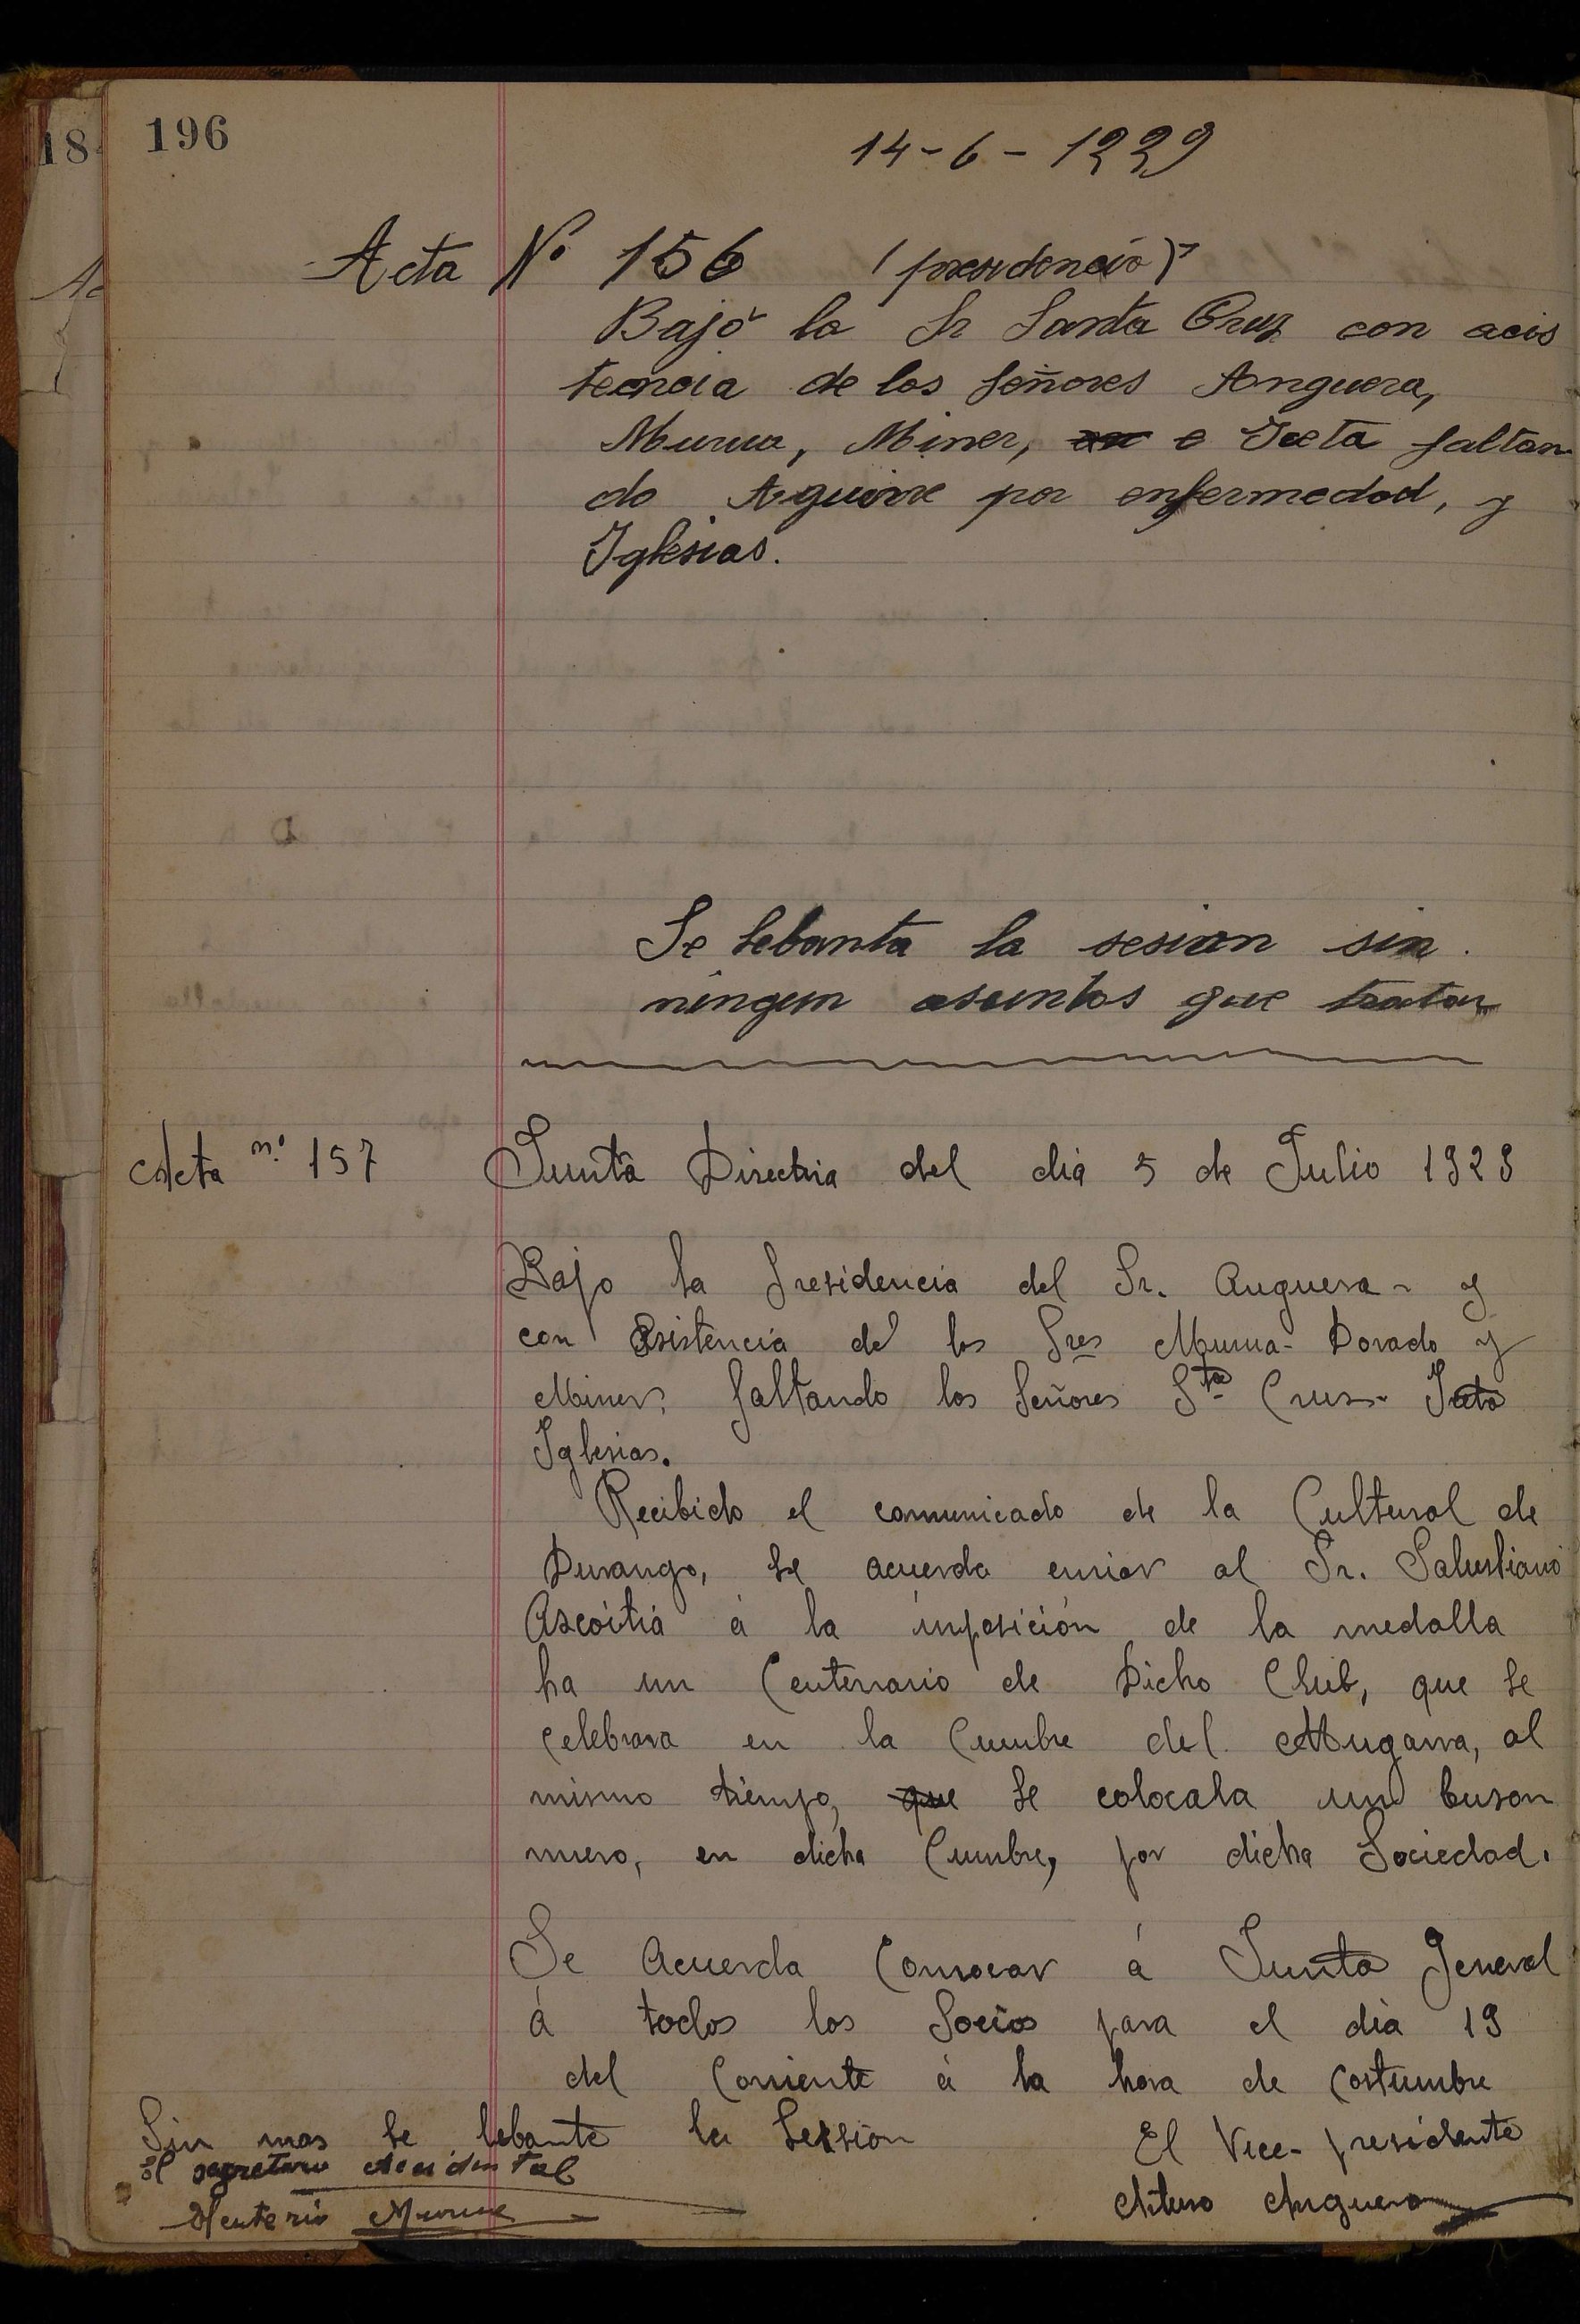 196
14-6-1929
Acta Nº 156 (presidencia)
Bajo la Sr Santa Cruz con acis
tencia de los señores Anguera,
Murua, Miner, e Izeta faltan
do Aguirre por enfermedad, y
Iglesias.
Se lebanta la sesion sin
ningun asuntos que tratar
Acta n.º 157 Junta Directiva del dia 5 de Julio 1929
Bajo la Presidencia del Sr. Anguera - y
con Asistencia de los Sres Murua - Dorado y
Miner, faltando los Señores Sta Cruz - Izeta
Iglesias.
Recibido el comunicado de la Cultural de
Durango, se acuerda enviar al Sr. Salustiano
Azcoitia á la imposición de la medalla
ha un Centenario de Dicho Club, que se
celebrara en la Cumbre del Mugarra, al
mismo tiempo, que se colocala un buson
nuevo, en dicha Cumbre, por dicha Sociedad.
Se Acuerda Convocar á Junta General
á todos los Socios para el dia 19
del Corriente á la hora de Costumbre
Sin mas se lebante la Session
El Vice-presidente
El segretario Acidental
Arturo Anguera
Murua